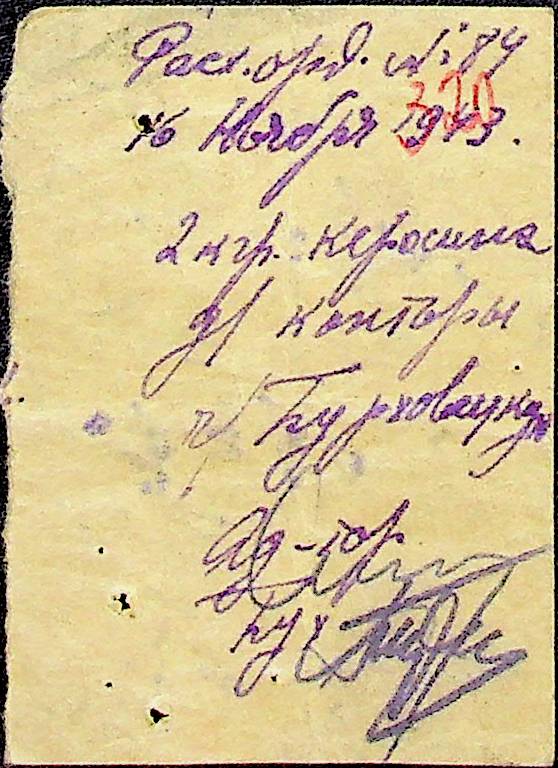 Расх. орд. № 84
320
16 Ноября 1943.
2 кгр. керосина
д/ конторы
ч/ Бурковецкую
Ад-тор
Бух.